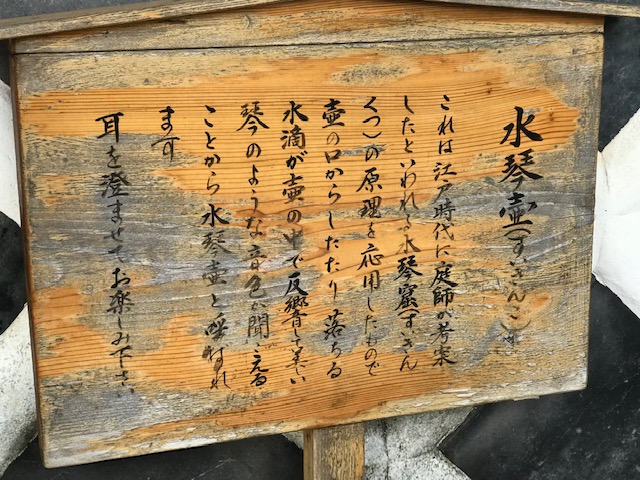 水琴壷(すいきんこ)
これは江戸時代に庭師が考案
したといわれる水琴窟(すいきん
くつ)の原理を応用したもので
壷の口からしたたり落ちる
水滴が壷の中で反響し美しい
琴のような音色が聞こえる
ことから水琴壷と呼ばれ
ます
耳を澄ませてお楽しみ下さい